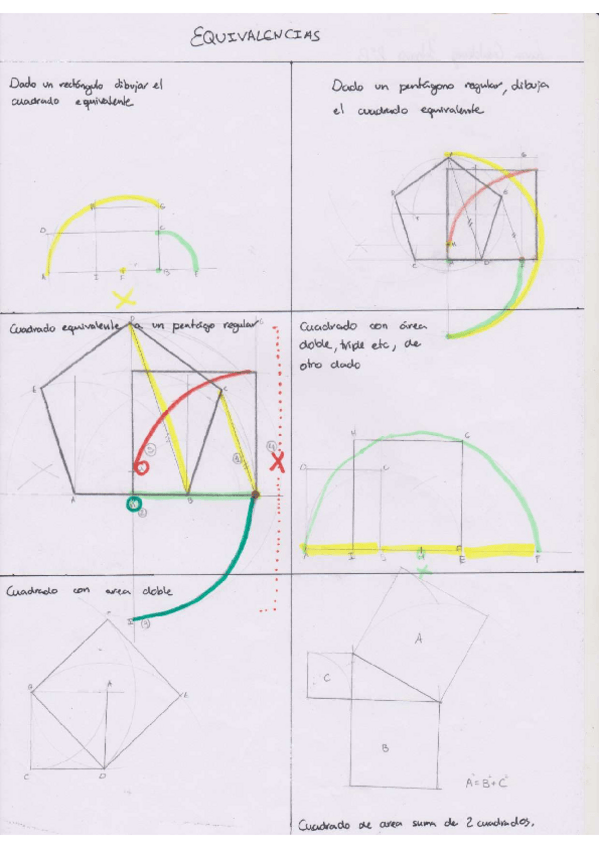 EQUIVALENCIAS
Dado un rectángulo dibujar el
cuadrado equivalente
Dado un pentágono regular, dibuja
el cuadrado equivalente
Cuadrado equivalente a un pentágo regular
Cuadrado con área
doble, triple etc, de
otro dado
Cuadrado con area doble
A
C
B
A²=B²+C²
Cuadrado de area suma de 2 cuadrados.